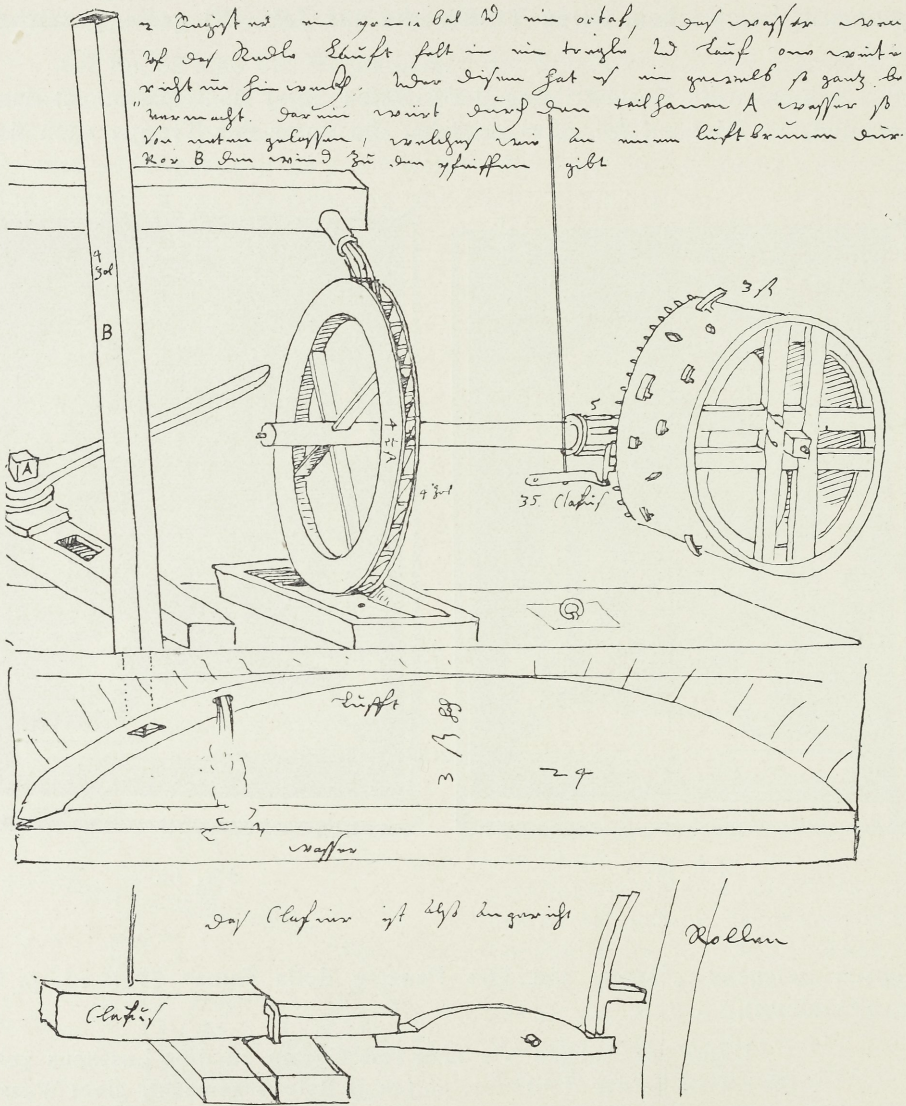 2 Register ein principal V ein octaf, das wasser wen
uf das Radle lauft felt in ein tregle Vd lauf
richt im hinweckh. Vder disem hat es ein gewelb so gantz be
vermacht. darein wirt durch den teilhanen A wasser so
von noten gelassen, welches wie an einem luftbrunen dur
Ror B den wind zu den pfeiffen gibt
4 Zol
B
3 ß
5
A
4 Zol
35 Clafus
Lufft
24
wasser
das Clafier ist also angericht
Rollen
Clafus